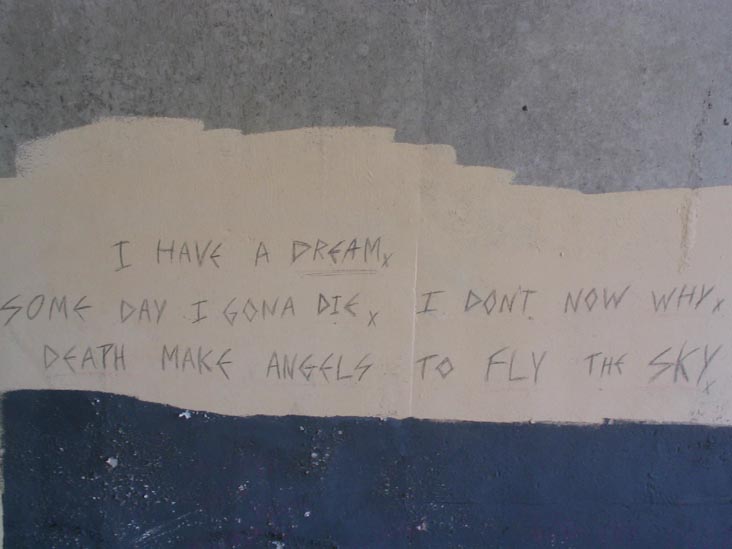 I HAVE A DREAMx
SOME DAY I GONA DIEx I DONT NOW WHYx
DEATH MAKE ANGELS TO FLY THE SKYx